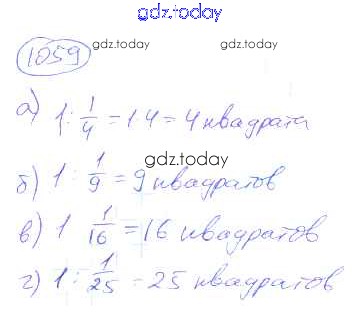 gdz.today
1059
gdz.today
gdz.today
а) 1 : 1/4 = 1 · 4 = 4 квадрата
gdz.today
б) 1 : 1/9 = 9 квадратов
в) 1 1/16 = 16 квадратов
г) 1 : 1/25 = 25 квадратов